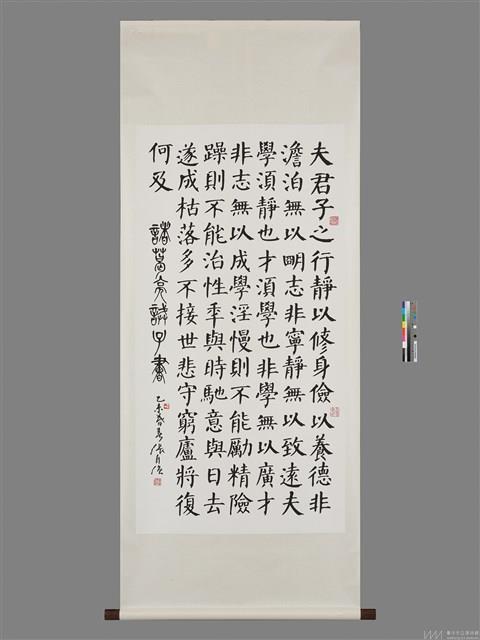 夫君子之行靜以修身儉以養德非
澹泊無以明志非寧靜無以致遠夫
學湏靜也才湏學也非學無以廣才
非志無以成學淫慢則不能勵精險
躁則不能治性秊與時馳意與日去
遂成枯落多不接世悲守窮廬將復
何及
諸葛亮誡子書
乙未春